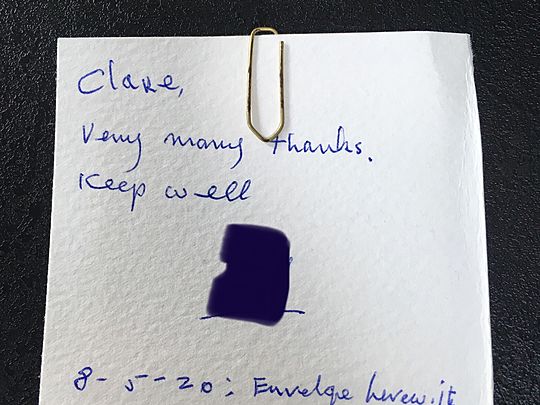 Clare,
Very many thanks.
Keep well
8-5-20: Envelope herewith